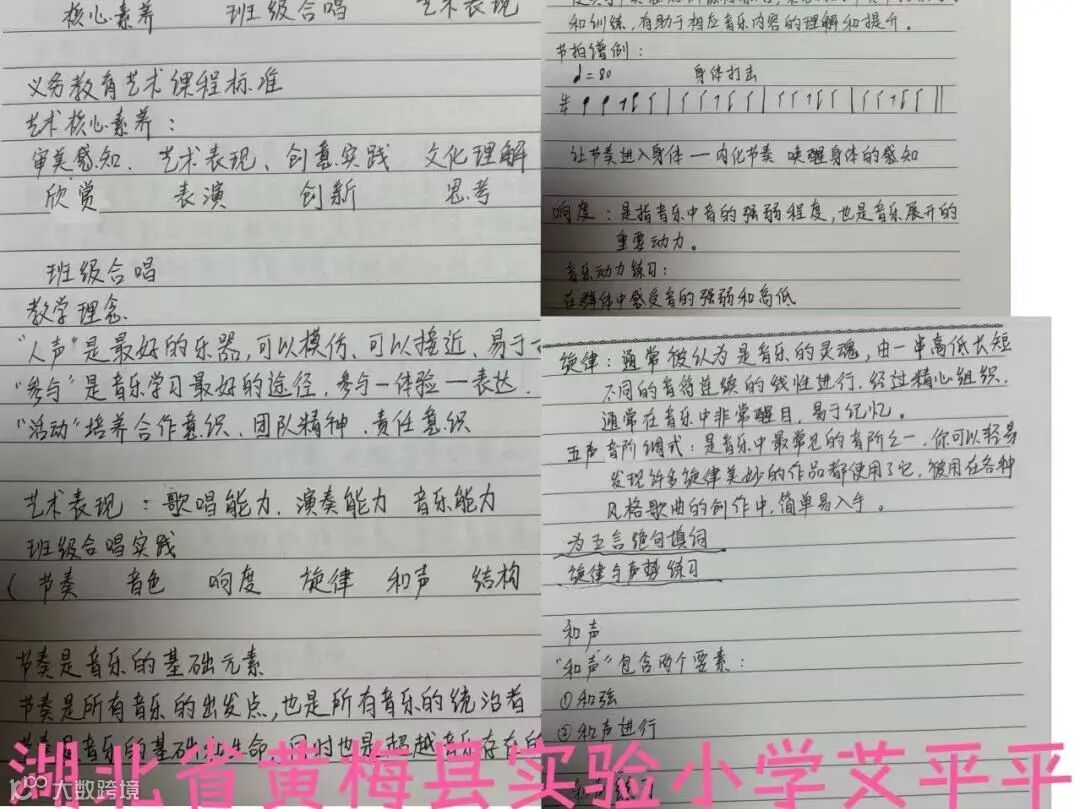 核心素养 班级合唱 艺术表现
义务教育艺术课程标准
艺术核心素养:
审美感知、艺术表现、创意实践 文化理解
欣赏 表演 创新 思考
班级合唱
教学理念
“人声”是最好的乐器,可以模仿、可以接近、易于
“参与”是音乐学习最好的途径,参与—体验—表达.
“活动”培养合作意识、团队精神、责任意识
艺术表现:歌唱能力、演奏能力 音乐能力
班级合唱实践
(节奏 音色 响度 旋律 和声 结构
节奏是音乐的基础元素
节奏是所有音乐的出发点,也是所有音乐的统治者
节奏是音乐的基础与生命,同时也是超越音乐存在的
和训练,有助于相应音乐内容的理解和提升。
节拍谱例:
♩=80 身体打击
让节奏进入身体—内化节奏 唤醒身体的感知
响度:是指音乐中音的强弱程度,也是音乐展开的
重要动力。
音乐动力练习:
在群体中感受音的强弱和高低
旋律:通常被认为是音乐的灵魂,由一串高低长短
不同的音符连续的线性进行,经过精心组织,
通常在音乐中非常醒目,易于记忆。
五声音阶调式:是音乐中最常见的音阶之一,你可以轻易
发现许多旋律美妙的作品都使用了它,被用在各种
风格歌曲的创作中,简单易入手。
为五言绝句填词
旋律与声势练习
和声
“和声”包含两个要素:
①和弦
②和声进行
湖北省黄梅县实验小学艾平平
大数跨境